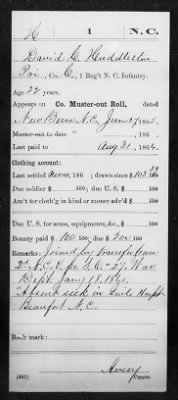 H 1 N.C.
David C. Huddleston
Pri., Co. C, 1 Reg't N. C. Infantry.
Age 22 years.
Appears on Co. Muster-out Roll, dated
New Bern N.C., June 27 1865.
Muster-out to date , 186 .
Last paid to Aug 31, 1864.
Clothing account:
Last settled never, 186 ; drawn since $ 103 100
Due soldier $ 100; due U. S. $ 100
Am't for cloth'g in kind or money adv'd $ 100
Due U. S. for arms, equipments, &c., $ 100
Bounty paid $ 100 100; due $ 200 100
Remarks: Joined by transfer from
2d N.C.
Dept. Jany 18, 1865.
Absent sick in Hosp't
Beaufort N.C.
Book mark:
Avery
Copyist.